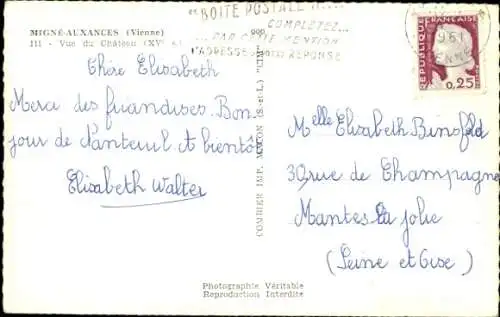 MIGNÉ-AUXANCES (Vienne)
111 - Vue du Château (XVe s.)
"BOITE POSTALE N...
COMPLETEZ...
...PAR CETTE MENTION
L'ADRESSE POUR REPONSE
961
VIENNE
REPUBLIQUE FRANÇAISE
0,25
Chère Elisabeth
Merci des friandises. Bon
jour de Nanteuil A bientôt
Elisabeth Walter
COMBIER IMP. MACON (S.-et-L.) "CIM"
Melle Elisabeth Binsfeld
30 rue de Champagne
Mantes la jolie
(Seine et Oise)
Photographie Véritable
Reproduction Interdite